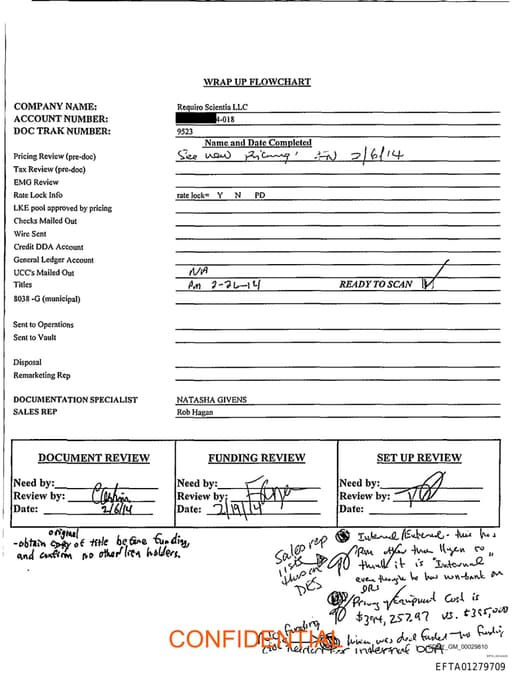 WRAP UP FLOWCHART
COMPANY NAME: Requiro Scientia LLC
ACCOUNT NUMBER: 4-018
DOC TRAK NUMBER: 9523
Name and Date Completed
Pricing Review (pre-doc) See new Pricing! 2/6/14
Tax Review (pre-doc)
EMG Review
Rate Lock Info rate lock= Y N PD
LKE pool approved by pricing
Checks Mailed Out
Wire Sent
Credit DDA Account
General Ledger Account
UCC's Mailed Out N/A
Titles Am 2-26-14 READY TO SCAN
8038 -G (municipal)
Sent to Operations
Sent to Vault
Disposal
Remarketing Rep
DOCUMENTATION SPECIALIST NATASHA GIVENS
SALES REP Rob Hagan
DOCUMENT REVIEW FUNDING REVIEW SET UP REVIEW
Need by: Need by: Need by:
Review by: Review by: Review by:
Date: 2/6/14 Date: 2/19/14 Date:
original
-obtain copy of title before funding,
and confirm no other lien holders.
Sales rep
lists
this on
DES
Internal/External - this has
other than Hagen so
think it is "Internal"
even though he has non-bank on
DRS
Pricing Equipment Cost is
$394,257.97 vs. $395,000
funding
was deal funded - no funding
for internal DDA
CONFIDENTIAL
_GM_00029810
EFTA01279709